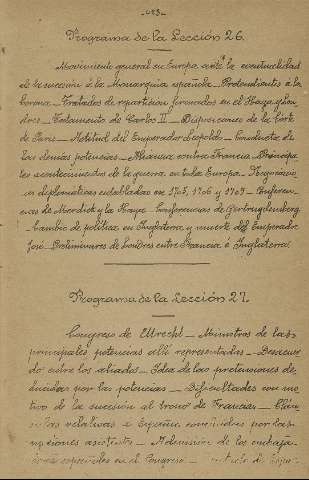 -483-
Programa de la Lección 26.
Movimiento general en Europa ante la eventualidad
de la sucesion á la Monarquia española _ Pretendientes á la
Corona _ Tratados de reparticion firmados en el Haya y Lon-
dres _ Testamento de Carlos II _ Disposiciones de la Corte
de Paris _ Actitud del Emperador Leopoldo _ Conducta de
las demás potencias _ Alianza contra Francia _ Principa-
les acontecimientos de la guerra en toda Europa _ Negociacio-
nes diplomaticas entabladas en 1705, 1706 y 1709 _ Conferen-
cias de Mordick y la Haya _ Conferencias de Gertruydemberg
_ Cambio de politica en Inglaterra y muerte del Emperador
José _ Preliminares de Londres entre Francia é Inglaterra
Programa de la Lección 27.
Congreso de Utrecht _ Ministros de las
principales potencias alli representadas _ Desacuer-
do entre los aliados _ Idea de las pretensiones de-
ducidas por las potencias _ Dificultades con mo-
tivo de la sucesion al trono de Francia _ Cláu-
sulas relativas á España convenidas por las
naciones asistentes _ Admision de los embaja-
dores españoles en el Congreso _